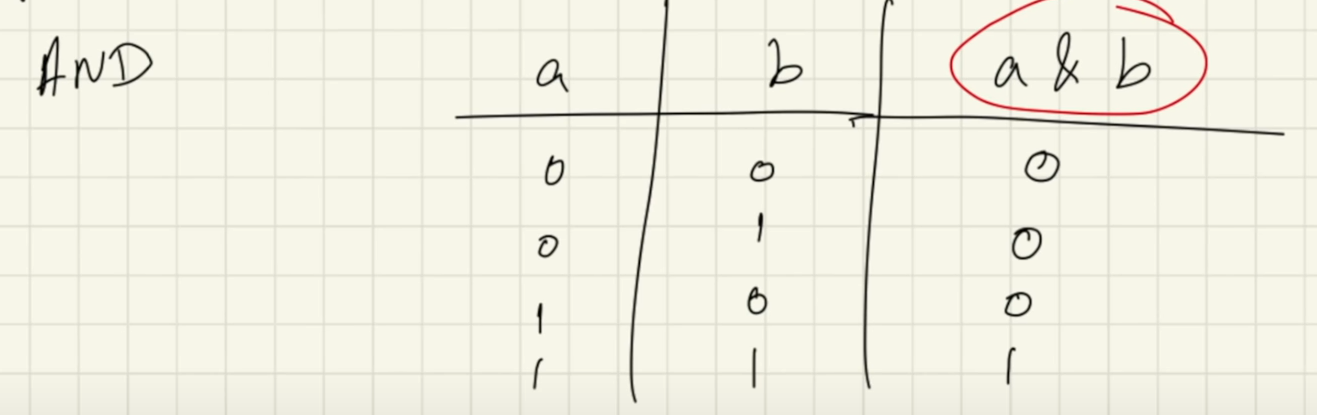 AND a b a & b
0 0 0
0 1 0
1 0 0
1 1 1